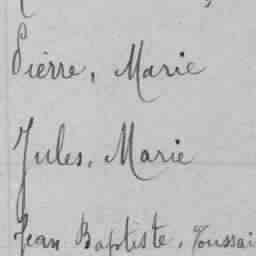 Pierre, Marie
Jules, Marie
Jean Baptiste, Toussai